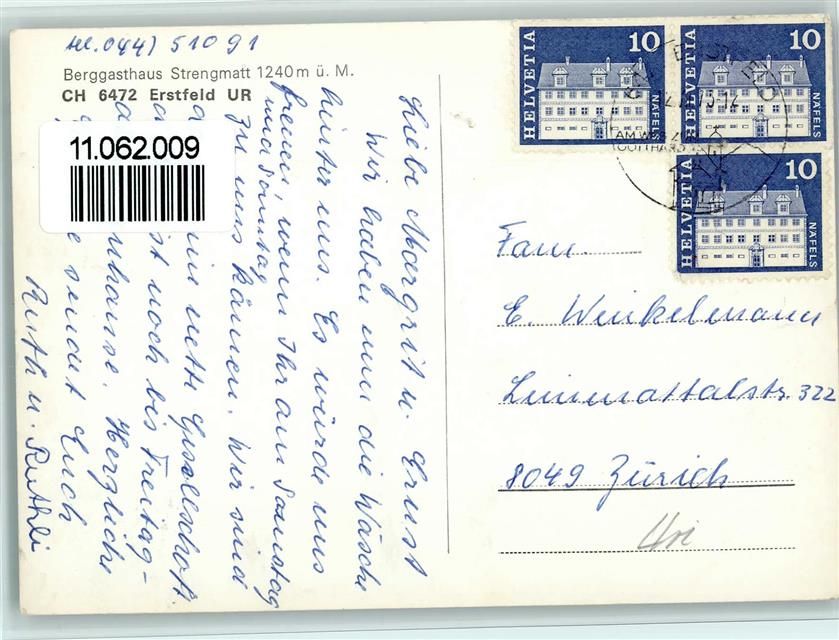 tel. 044) 51091
Berggasthaus Strengmatt 1240 m ü. M.
CH 6472 Erstfeld UR
11.062.009
Liebe Margrit u. Ernst
Wir haben nun die Wäsche
hinter uns. Es würde uns
freuen, wenn Ihr am Samstag
und Sonntag
zu uns kämen. Wir sind
ein nette Gesellschaft.
ist noch bis Freitag-
zuhause. Herzliche
sendet Euch
Ruth u. Ruthli
HELVETIA 10 NÄFELS
HELVETIA 10 NÄFELS
HELVETIA 10 NÄFELS
ERSTFELD
AM WEG ZUM
GOTTHARD
Fam.
E. Winkelmann
Limmattalstr. 322
8049 Zürich
Uri